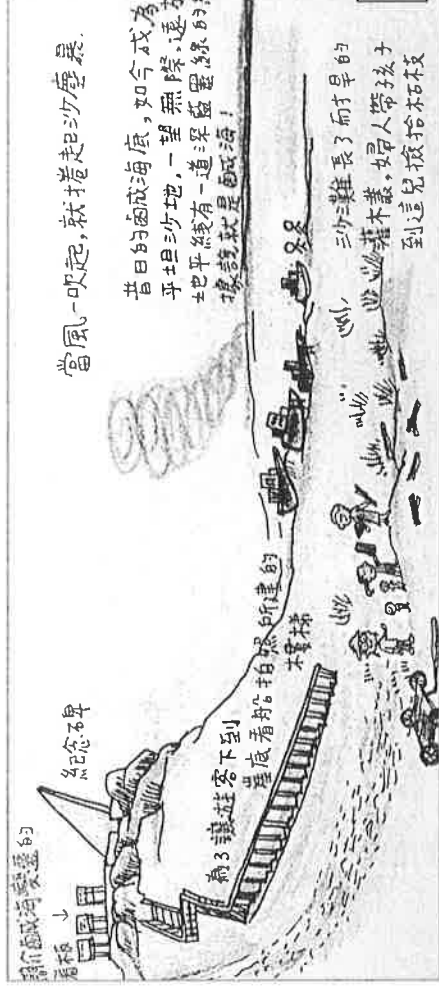 介鹹海變遷的
看板
紀念碑
為了讓遊客下到
崖底看船拍照所建的
樓梯
當風一吹起,就捲起沙塵暴.
昔日的鹵咸海底,如今成為
平坦沙地,一望無際,遠
地平線有一道深藍墨線的
據說就是鹵咸海!
沙灘長了耐旱的
灌木叢,婦人帶孩子
到這兒撿拾枯枝